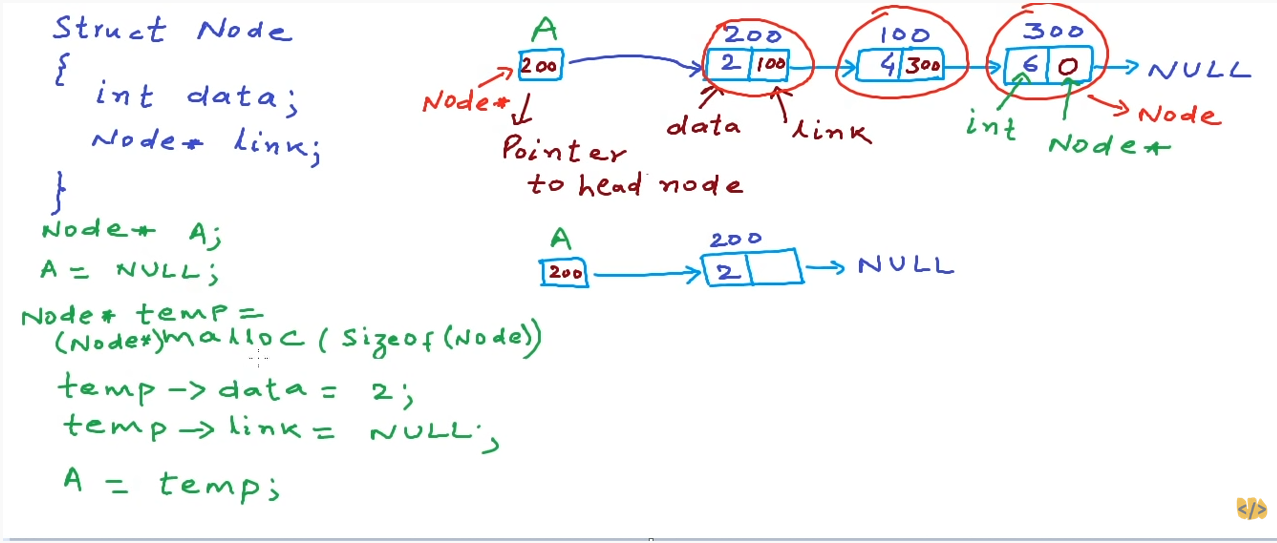 Struct Node
{
int data;
Node* link;
}
Node* A;
A = NULL;
Node* temp =
(Node*)malloc(sizeof(Node))
temp -> data = 2;
temp -> link = NULL;
A = temp;
A
200
Node*
Pointer
to head node
200
2 100
data link
100
4 300
300
6 0
NULL
int Node*
Node
A
200
200
2
NULL
</>